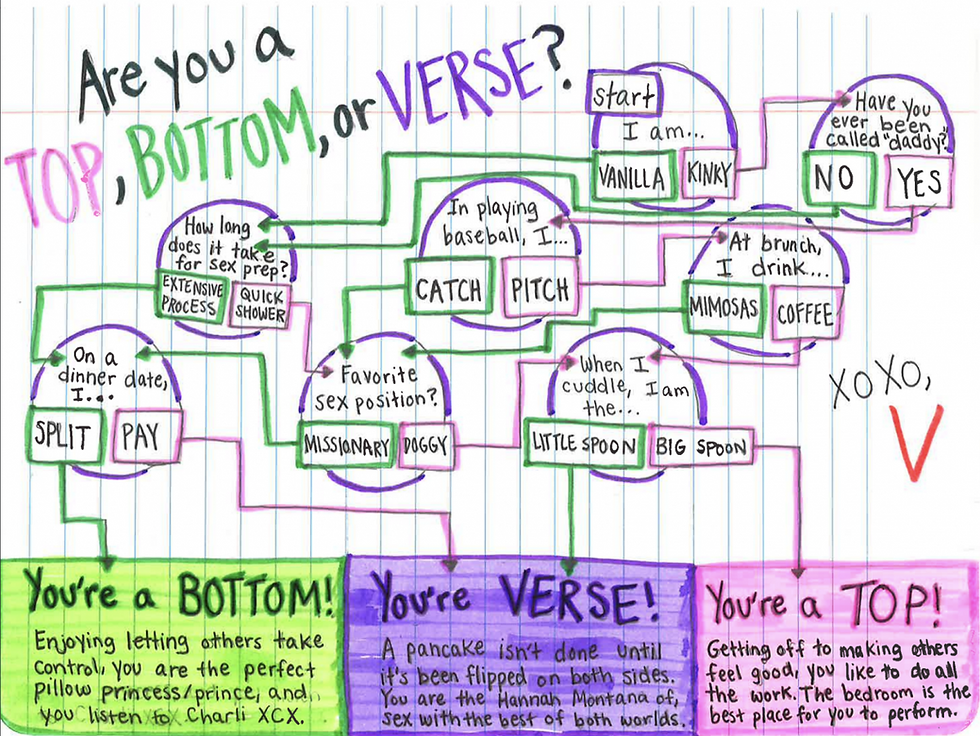 Are you a
TOP, BOTTOM, or VERSE?
start
I am...
VANILLA
KINKY
Have you
ever been
called "daddy?"
NO
YES
How long
does it take
for sex prep?
EXTENSIVE
PROCESS
QUICK
SHOWER
In playing
baseball, I...
CATCH
PITCH
At brunch,
I drink...
MIMOSAS
COFFEE
On a
dinner date,
I...
SPLIT
PAY
Favorite
sex position?
MISSIONARY
DOGGY
When I
cuddle, I am
the...
LITTLE SPOON
BIG SPOON
XOXO,
V
You're a BOTTOM!
Enjoying letting others take
control, you are the perfect
pillow princess/prince, and
you listen to Charli XCX.
You're VERSE!
A pancake isn't done until
it's been flipped on both sides.
You are the Hannah Montana of,
sex with the best of both worlds.
You're a TOP!
Getting off to making others
feel good, you like to do all
the work. The bedroom is the
best place for you to perform.